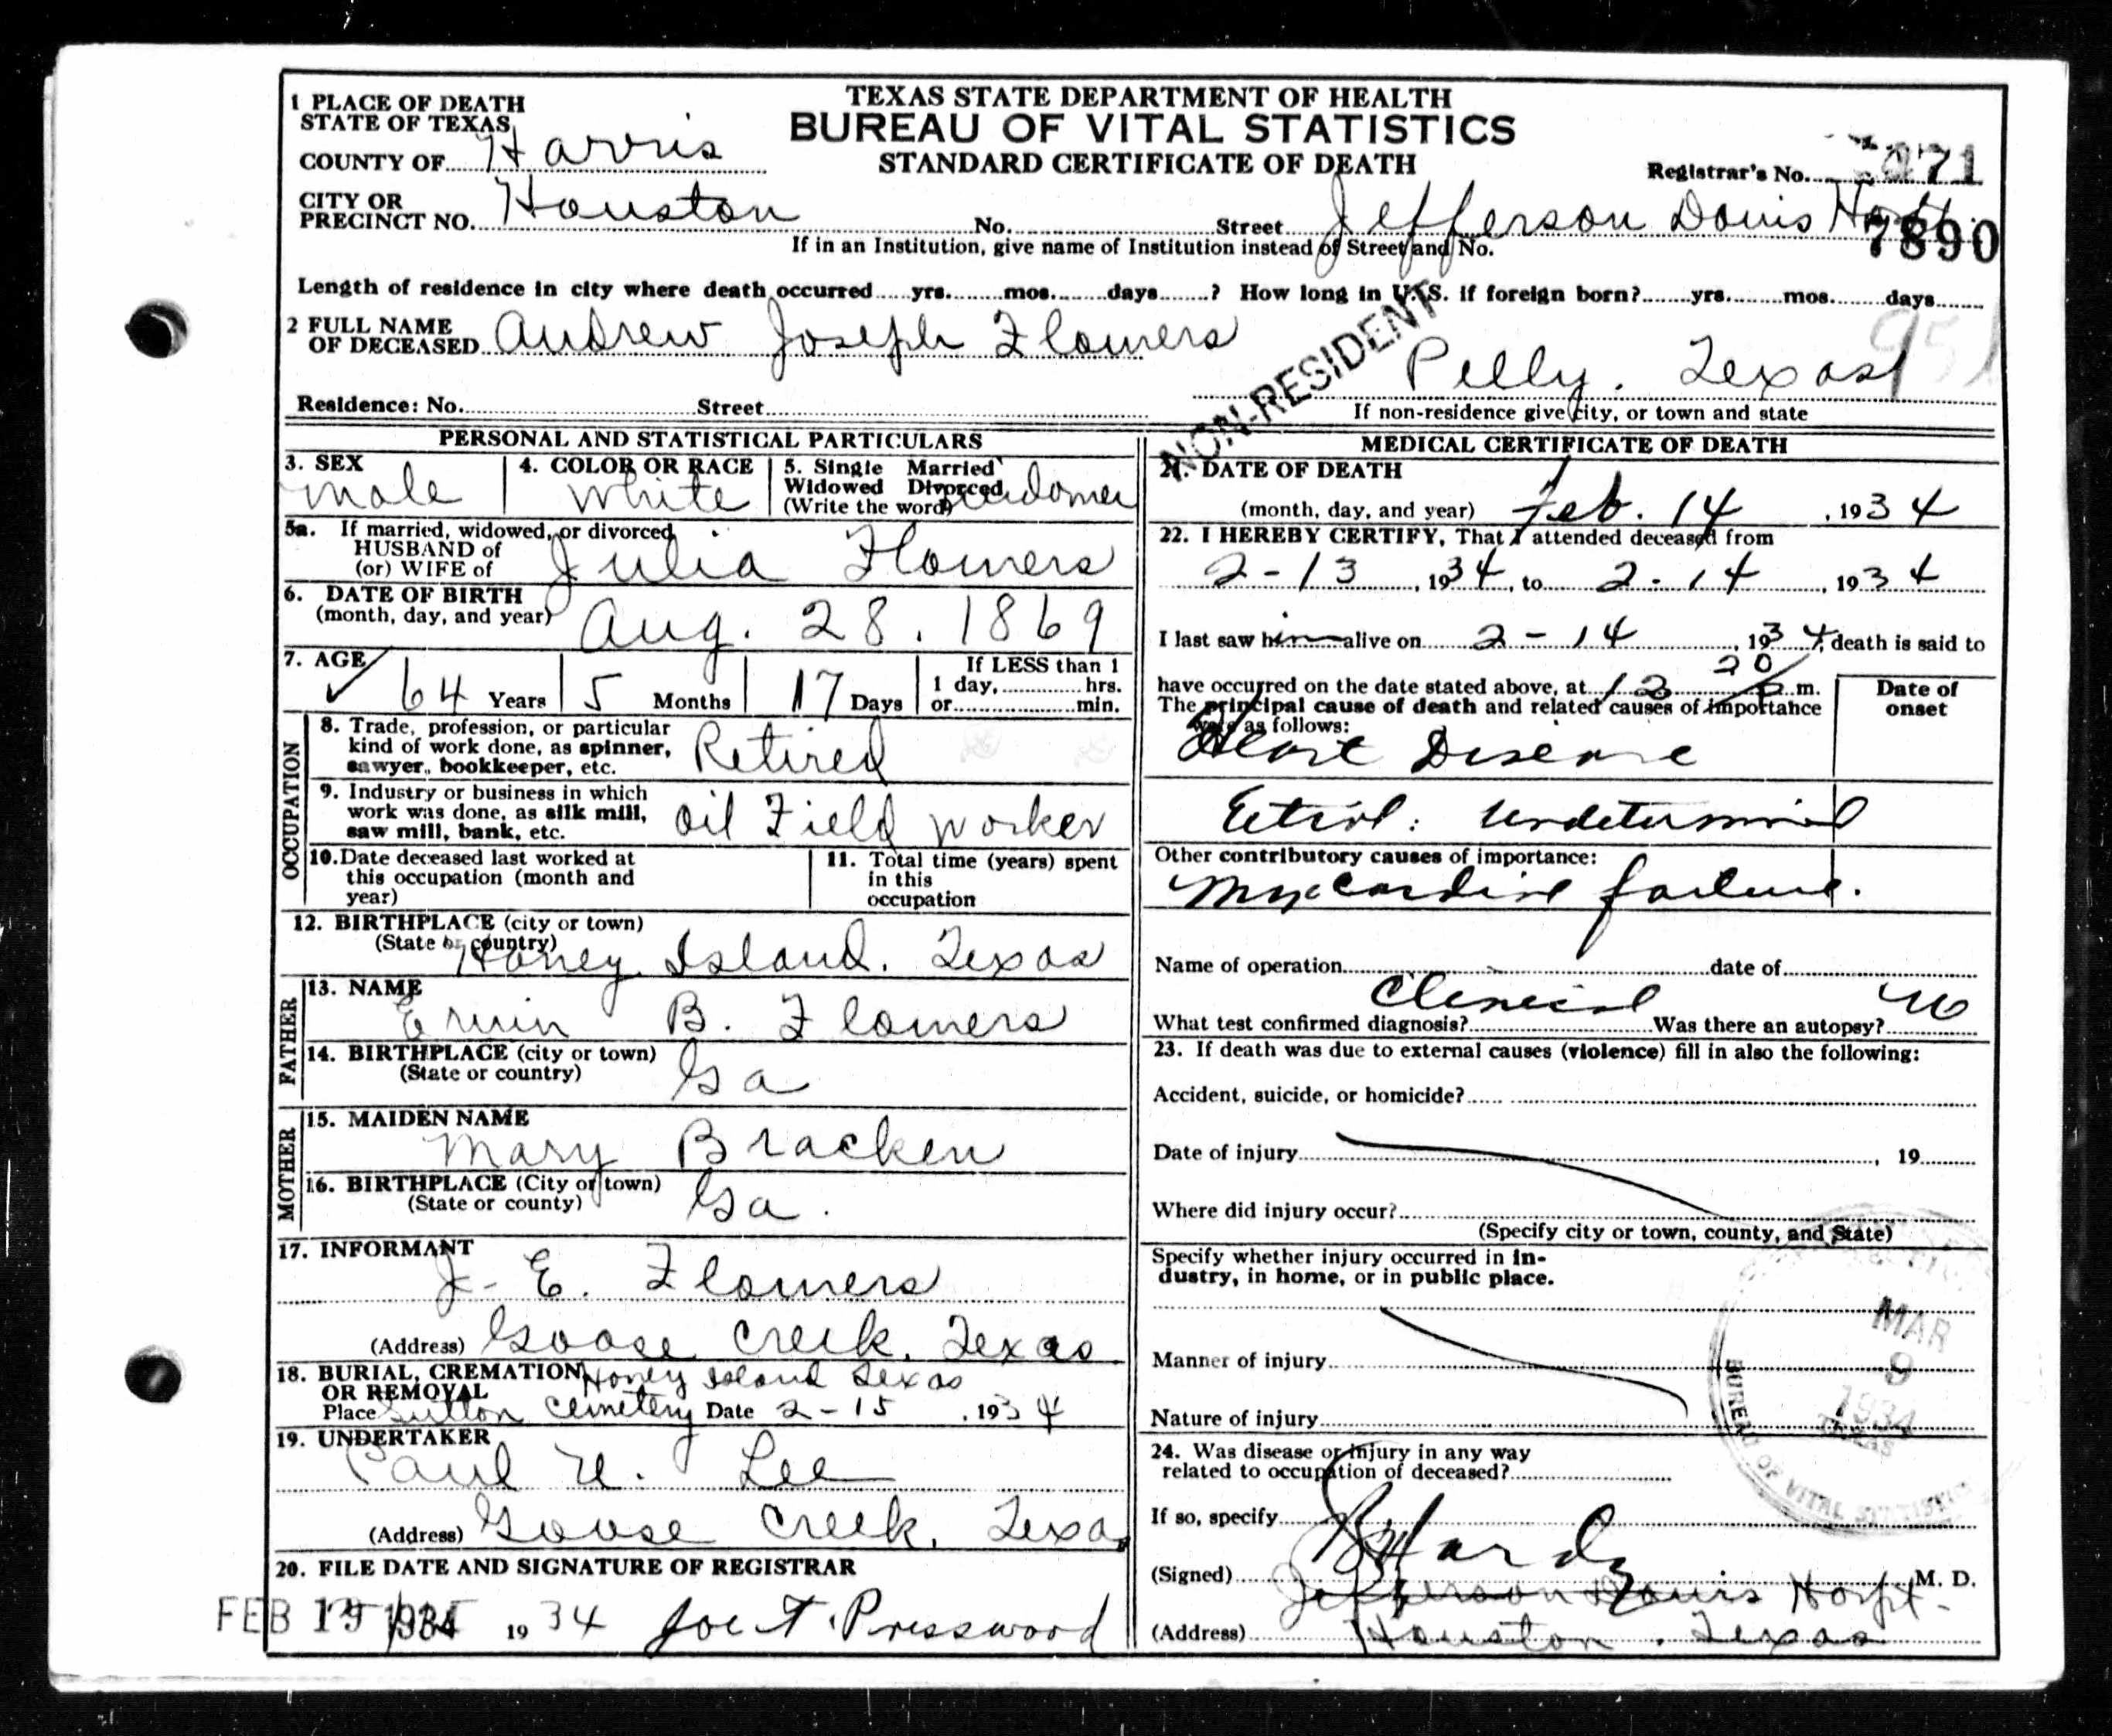 TEXAS STATE DEPARTMENT OF HEALTH
BUREAU OF VITAL STATISTICS
STANDARD CERTIFICATE OF DEATH
1 PLACE OF DEATH
STATE OF TEXAS,
COUNTY OF Harris
Registrar's No. 471
CITY OR
PRECINCT NO. Houston No. Street Jefferson Davis Hospt.
7890
If in an Institution, give name of Institution instead of Street and No.
Length of residence in city where death occurred yrs. mos. days ? How long in U.S. if foreign born? yrs. mos. days
2 FULL NAME
OF DECEASED Andrew Joseph Flowers
NON-RESIDENT
Pelly, Texas
951
Residence: No. Street
If non-residence give city, or town and state
PERSONAL AND STATISTICAL PARTICULARS
3. SEX male
4. COLOR OR RACE White
5. Single Married
Widowed Divorced
(Write the word) widower
5a. If married, widowed, or divorced
HUSBAND of
(or) WIFE of Julia Flowers
6. DATE OF BIRTH
(month, day, and year) Aug. 28. 1869
7. AGE 64 Years 5 Months 17 Days
If LESS than 1
1 day, hrs.
or min.
OCCUPATION
8. Trade, profession, or particular
kind of work done, as spinner,
sawyer, bookkeeper, etc. Retired
9. Industry or business in which
work was done, as silk mill,
saw mill, bank, etc. Oil Field Worker
10. Date deceased last worked at
this occupation (month and
year)
11. Total time (years) spent
in this
occupation
12. BIRTHPLACE (city or town)
(State or country) Honey Island. Texas
FATHER
13. NAME
Erwin B. Flowers
14. BIRTHPLACE (city or town)
(State or country) Ga
MOTHER
15. MAIDEN NAME
Mary Bracken
16. BIRTHPLACE (City or town)
(State or county) Ga.
17. INFORMANT
J. E. Flowers
(Address) Goose Creek, Texas
18. BURIAL, CREMATION Honey Island Texas
OR REMOVAL
Place Sutton Cemetery Date 2-15, 1934
19. UNDERTAKER
Paul U. Lee
(Address) Goose Creek, Texas
20. FILE DATE AND SIGNATURE OF REGISTRAR
FEB 1934 1934 Joe T. Presswood
MEDICAL CERTIFICATE OF DEATH
21. DATE OF DEATH
(month, day, and year) Feb. 14, 1934
22. I HEREBY CERTIFY, That I attended deceased from
2-13, 1934, to 2-14, 1934
I last saw him alive on 2-14, 1934, death is said to
have occurred on the date stated above, at 12 20 p.m.
The principal cause of death and related causes of importance
were as follows:
Date of
onset
Heart Disease
Etiol: Undetermined
Other contributory causes of importance:
Myocardial failure.
Name of operation date of
What test confirmed diagnosis? Clinical Was there an autopsy? no
23. If death was due to external causes (violence) fill in also the following:
Accident, suicide, or homicide?
Date of injury , 19
Where did injury occur?
(Specify city or town, county, and State)
Specify whether injury occurred in in-
dustry, in home, or in public place.
Manner of injury
Nature of injury
24. Was disease or injury in any way
related to occupation of deceased?
If so, specify
(Signed) Hardy M. D.
Jefferson Davis Hospt.
(Address) Houston, Texas
MAR
9
1934
TEXAS
BUREAU OF VITAL STATISTICS